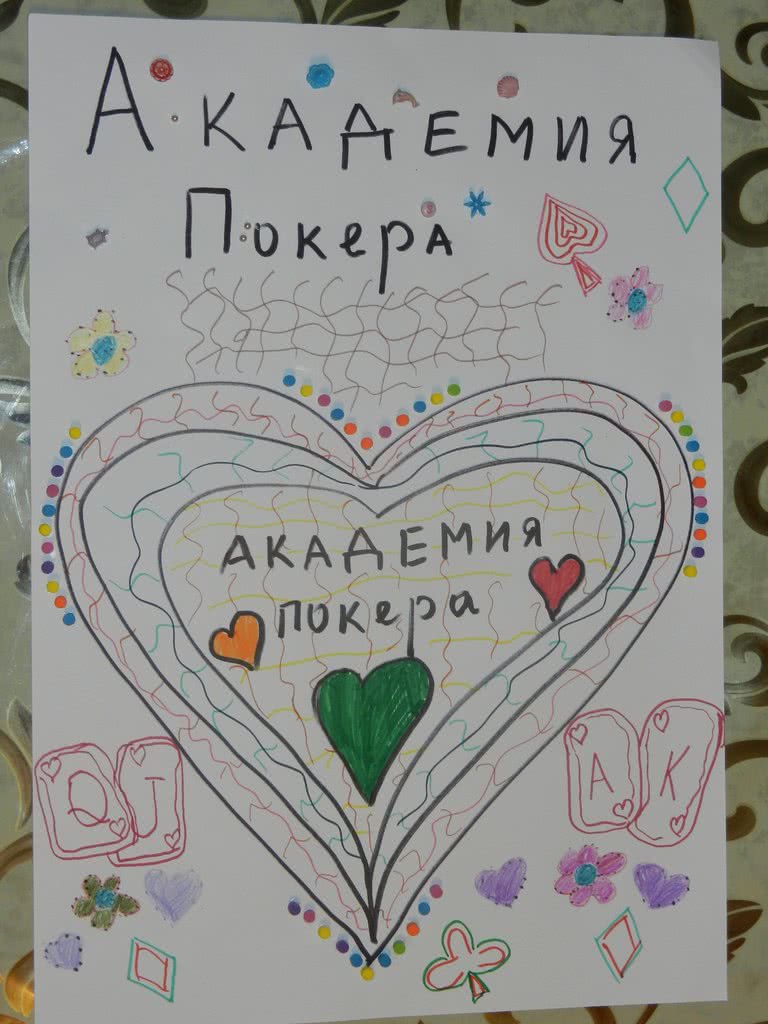 Академия
Покера
АКАДЕМИЯ
покера
Q J
A K